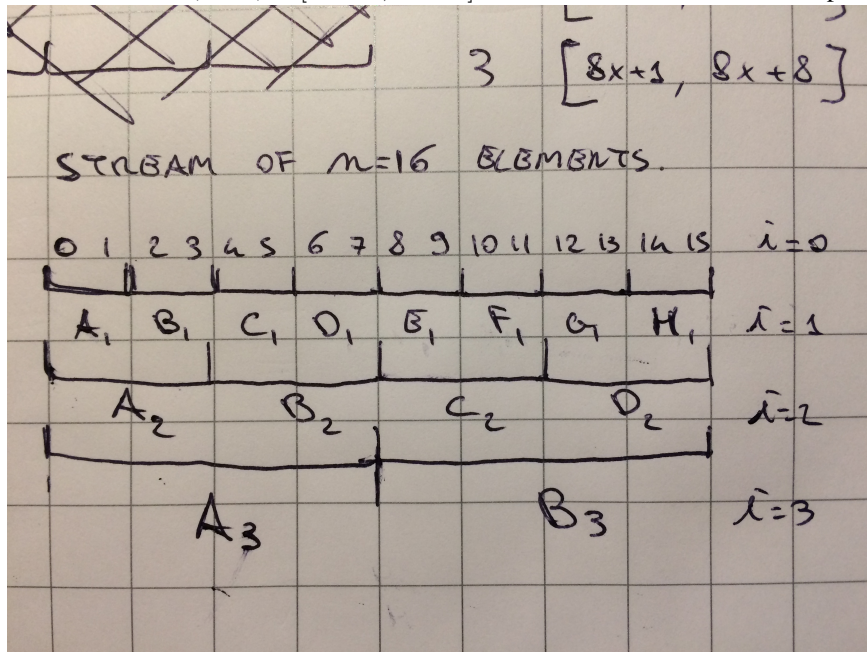 3 [8x+1, 8x+8]
STREAM OF n=16 ELEMENTS.
0 1 2 3 4 5 6 7 8 9 10 11 12 13 14 15 i=0
A₁ B₁ C₁ D₁ E₁ F₁ G₁ H₁ i=1
A₂ B₂ C₂ D₂ i=2
A₃ B₃ i=3